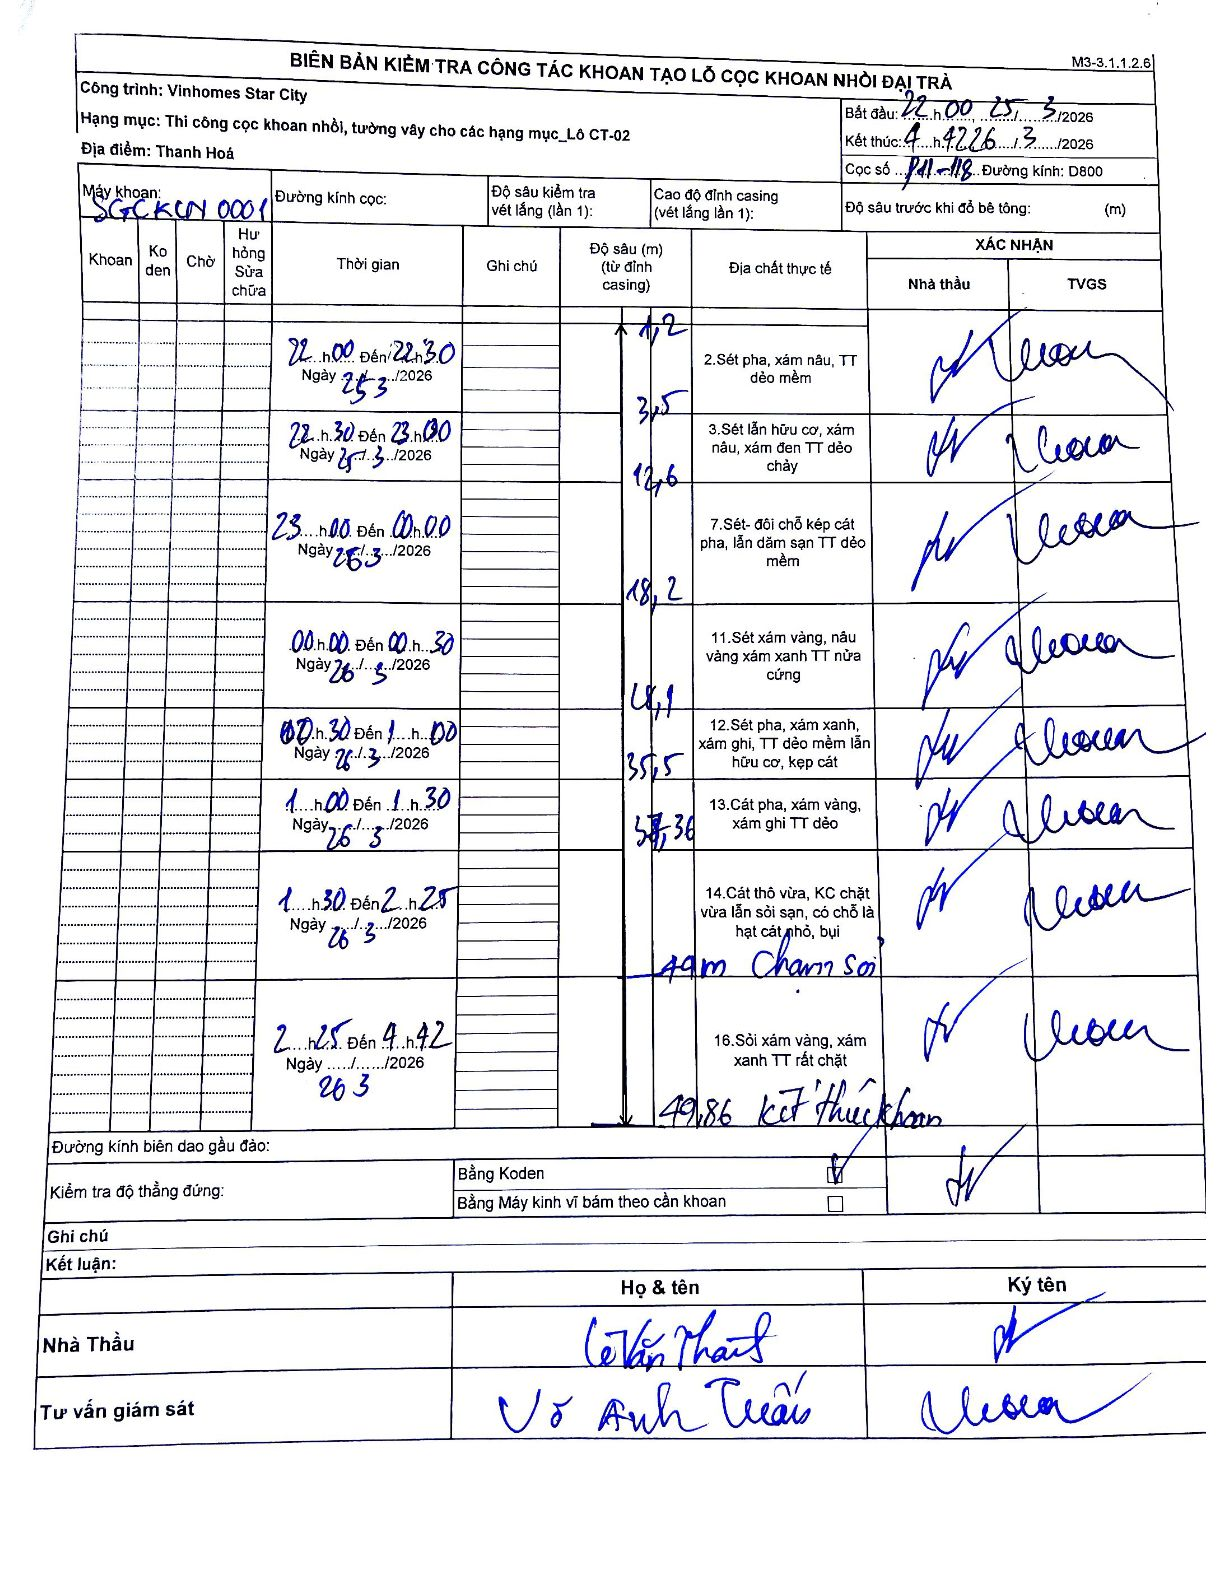 M3-3.1.1.2.6
BIÊN BẢN KIỂM TRA CÔNG TÁC KHOAN TẠO LỖ CỌC KHOAN NHỒI ĐẠI TRÀ
Công trình: Vinhomes Star City
Hạng mục: Thi công cọc khoan nhồi, tường vây cho các hạng mục_Lô CT-02
Địa điểm: Thanh Hoá
Bắt đầu: 22 h 00, 25/3/2026
Kết thúc: 4 h 42 26/3/2026
Cọc số P11-118 Đường kính: D800
Máy khoan: SGCKCN 0001
Đường kính cọc:
Độ sâu kiểm tra vét lắng (lần 1):
Cao độ đỉnh casing (vét lắng lần 1):
Độ sâu trước khi đổ bê tông: (m)
Khoan
Ko den
Chờ
Hư hỏng Sửa chữa
Thời gian
Ghi chú
Độ sâu (m) (từ đỉnh casing)
Địa chất thực tế
XÁC NHẬN
Nhà thầu
TVGS
1,2
22 h 00 Đến 22 h 30
Ngày 25/3/2026
2.Sét pha, xám nâu, TT
dẻo mềm
3,5
22 h 30 Đến 23 h 00
Ngày 25/3/2026
3.Sét lẫn hữu cơ, xám
nâu, xám đen TT dẻo
chảy
12,6
23 h 00 Đến 00 h 00
Ngày 25/3/2026
7.Sét- đôi chỗ kép cát
pha, lẫn dăm sạn TT dẻo
mềm
18,2
00 h 00 Đến 00 h 30
Ngày 26/3/2026
11.Sét xám vàng, nâu
vàng xám xanh TT nửa
cứng
00 h 30 Đến 1 h 00
Ngày 26/3/2026
12.Sét pha, xám xanh,
xám ghi, TT dẻo mềm lẫn
hữu cơ, kẹp cát
35,5
1 h 00 Đến 1 h 30
Ngày 26/3/2026
13.Cát pha, xám vàng,
xám ghi TT dẻo
1 h 30 Đến 2 h 25
Ngày 26/3/2026
14.Cát thô vừa, KC chặt
vừa lẫn sỏi sạn, có chỗ là
hạt cát nhỏ, bụi
49m Chạm sỏi
2 h 25 Đến 4 h 42
Ngày 26/3/2026
16.Sỏi xám vàng, xám
xanh TT rất chặt
49,86 kết thúc khoan
Đường kính biên dao gầu đào:
Kiểm tra độ thẳng đứng:
Bằng Koden
Bằng Máy kinh vĩ bám theo cần khoan
Ghi chú
Kết luận:
Họ & tên
Ký tên
Nhà Thầu
Lê Văn
Tư vấn giám sát
Võ Anh Tuấn